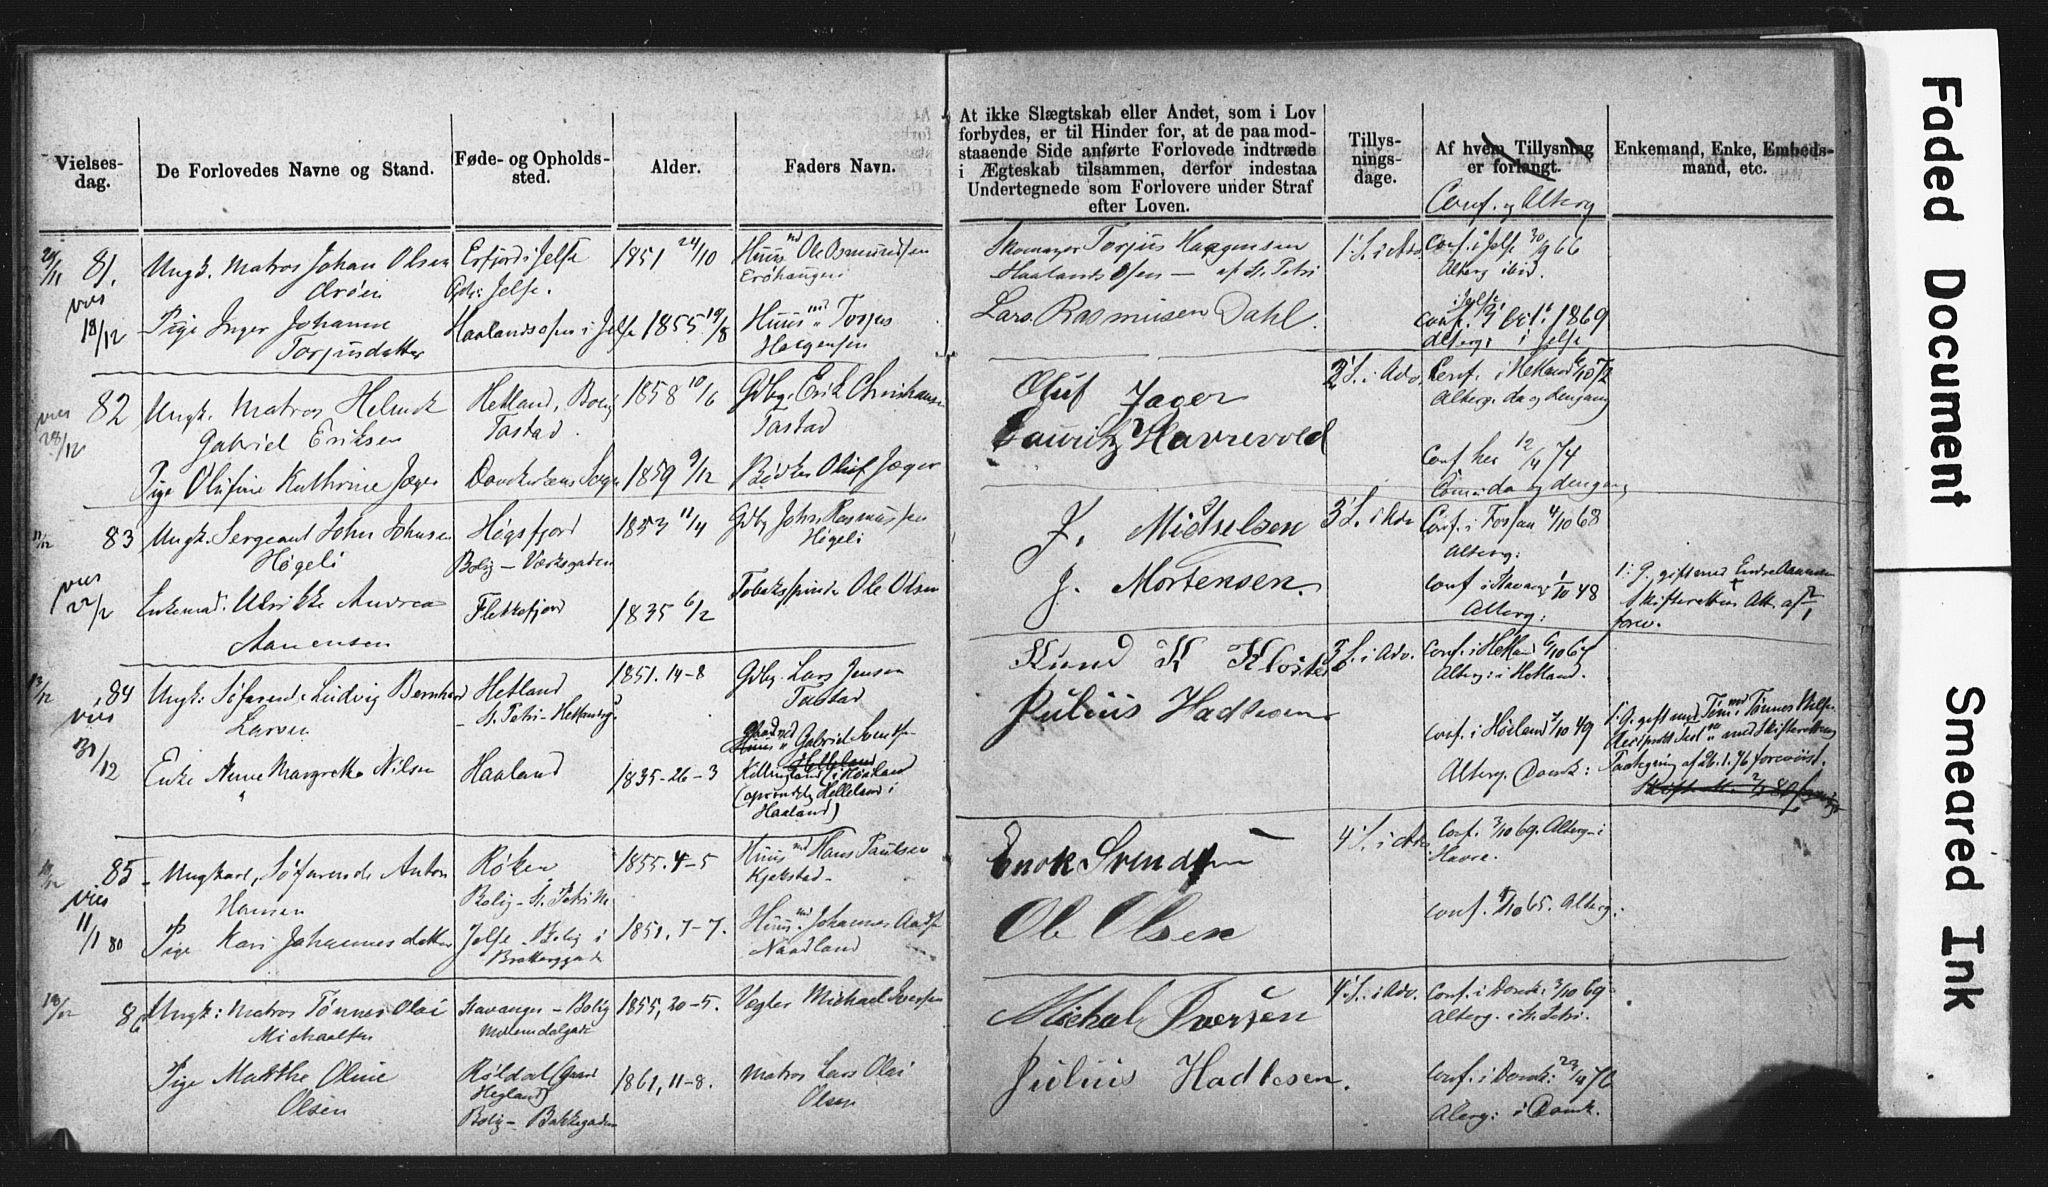 Vielses-
dag.
De Forlovedes Navne og Stand.
Føde- og Opholds-
sted.
Alder.
Faders Navn.
At ikke Slægtskab eller Andet, som i Lov
forbydes, er til Hinder for, at de paa mod-
staaende Side anførte Forlovede indtræde
i Ægteskab tilsammen, derfor indestaa
Undertegnede som Forlovere under Straf
efter Loven.
Tillys-
nings-
dage.
Af hvem Tillysning
er forlangt.
Conf. og Alterg
Enkemand, Enke, Embeds-
mand, etc.
29/11 81.
vies
18/12
Ungk. Matros Johan Olsen
Pige Inger Johanne
Torjusdatter
Erfjord i Jelse
Jelse.
Haalandsosen i Jelse
1851 24/10
1855 19/8
Huusmd Ole Osmundsen
Huusmd Torjus
Haagensen
Skomager Torjus Haagensen
Haalandsosen - af St. Petri
Lars Rasmussen Dahl.
1' S. i Adv.
Conf. i Jelse 30/9 66
Alterg ibid.
i Jelse
Conf. 1869
Alterg: i Jelse
82
vies
28/12
Ungk. Matros Helmik
Gabriel Eriksen
Pige Olufine Kathrine Jæger
Hetland, Bolig
Tastad.
1858 10/6
1859 9/12
Gdbr. Erik Christiansen
Tastad
Bødker Oluf Jæger
Oluf Jæger
Lauritz Havrevold
2' S. i Adv.
Conf. i Hetland 6/10 72
Alterg. da og dengang
Conf her 12/4 74
Comm: da og dengang
11/12 83
vies
22/2
Ungk. Sergeant John Johnsen
Høgeli
Enkemad. Ulrikke Andrea
Aanensen
Høgsfjord
Bolig - Værksgaden
Flekkefjord
1853 11/4
1835 6/2
Gdbr John Rasmussen
Høgeli
Tobakspinder Ole Olsen
J. Michelsen
J. Mortensen.
3' S. i Adv
Conf. i Fossan 4/10 68
Alterg:
Conf i Stavanger 1/10 48
Alterg:
1: G. gift med Endre Aanensen
Skifterettens Att. af 12/1
forev.
13/12 84
vies
31/12
Ungk: Søfarende Ludvig Bernhard
Larsen
Enke Anne Margrethe Nilsen
Hetland
- St. Petri -
Haaland
1851. 14-8
1835-26-3
Gdbr. Lars Jensen
Tastad
Gaardmd
Huusmd Gabriel
Helleland
i Høiland
(oprindelig Helleland i
Haaland)
Knud K Kloster
Julius Hadlesen
3' S. i Adv.
Conf. i Hetland 6/10 67
Alterg: i Hetland.
Conf. i Høiland 7/10 49
Alterg. Domk:
1: G. gift med Tønnes
med Skifterettens
af 26.1.76 forevist.
85
vies
11/1 80
- Ungkarl, Søfarende Anton
Hansen
Pige Kari Johannesdatter
Røken
Bolig - St. Petri M
Jelse - Bolig i
1855. 4-5
1851, 7-7.
Huusmd Hans Paulsen
Kjekstad -
Huusmd Johannes
Naadland
Enok Svendsen
Ole Olsen
4' S. i Adv
Conf. 3/10 69. Alterg. i
Havre.
Conf. 1/10 65. Alterg:
86
Ungk: Matros Tønnes Olai
Michaelsen
Pige Marthe Oline
Olsen
Stavanger - Bolig
Røldal
Bolig - Bakkegaden
1855, 20-5.
1861, 11-8.
Vegter Michael Iversen
Matros Lars Olai
Olsen
Michal Iversen
Julius Hadlesen.
4' S. i Adv.
Conf. i Domk: 3/10 69
Alterg. i St. Petri.
Conf. i Domk: 23/4 76
Alterg: i Domk.
Faded Document
Smeared Ink